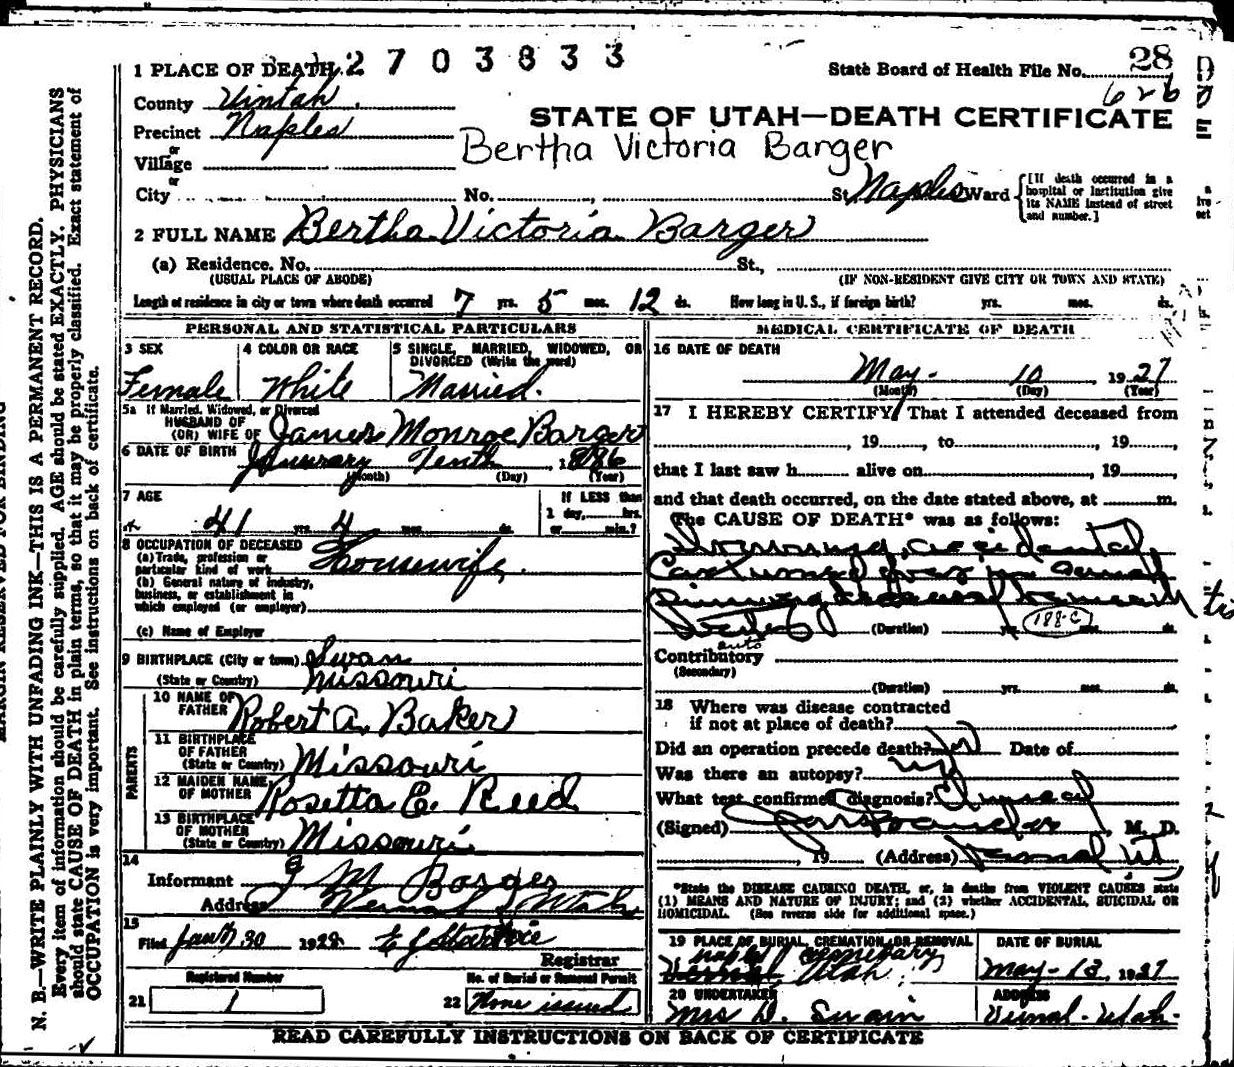 1 PLACE OF DEATH 2703833
State Board of Health File No. 28
626
County Uintah
STATE OF UTAH—DEATH CERTIFICATE
Precinct Naples
or
Village
Bertha Victoria Barger
or
City No. St. Naples Ward
[If death occurred in a hospital or institution give its NAME instead of street and number.]
2 FULL NAME Bertha Victoria Barger
(a) Residence. No. St.,
(USUAL PLACE OF ABODE) (IF NON-RESIDENT GIVE CITY OR TOWN AND STATE)
Length of residence in city or town where death occurred 7 yrs. 5 mos. 12 ds. How long in U. S., if foreign birth? yrs. mos. ds.
PERSONAL AND STATISTICAL PARTICULARS
3 SEX 4 COLOR OR RACE 5 SINGLE, MARRIED, WIDOWED, OR DIVORCED (Write the word)
Female White Married.
5a If Married, Widowed, or Divorced
HUSBAND OF
(OR) WIFE OF James Monroe Barger
6 DATE OF BIRTH January Tenth, 1886
(Month) (Day) (Year)
7 AGE If LESS than
1 day, hrs.
41 yrs. 4 mos. ds. or min.?
8 OCCUPATION OF DECEASED
(a) Trade, profession or
particular kind of work Housewife.
(b) General nature of industry,
business, or establishment in
which employed (or employer)
(c) Name of Employer
9 BIRTHPLACE (City or town) Swan
(State or Country) Missouri
PARENTS
10 NAME OF
FATHER Robert A. Baker
11 BIRTHPLACE
OF FATHER
(State or Country) Missouri
12 MAIDEN NAME
OF MOTHER Rosetta E. Reed
13 BIRTHPLACE
OF MOTHER
(State or Country) Missouri
14
Informant J M Barger
Address Vernal Utah
15
Filed Jan 30 1928
Registrar
Registered Number No. of Burial or Removal Permit
21 1 22 None issued
MEDICAL CERTIFICATE OF DEATH
16 DATE OF DEATH
May 10, 1927
(Month) (Day) (Year)
17 I HEREBY CERTIFY, That I attended deceased from
, 19 , to , 19
that I last saw h alive on , 19
and that death occurred, on the date stated above, at m.
The CAUSE OF DEATH* was as follows:
accidental
188-c
(Duration) yrs. mos. ds.
auto
Contributory
(Secondary)
(Duration) yrs. mos. ds.
18 Where was disease contracted
if not at place of death?
Did an operation precede death? Date of
Was there an autopsy?
What test confirmed diagnosis? Clinical
(Signed) , M. D.
, 19 (Address) Vernal Ut
*State the DISEASE CAUSING DEATH, or, in deaths from VIOLENT CAUSES state
(1) MEANS AND NATURE OF INJURY; and (2) whether ACCIDENTAL, SUICIDAL OR
HOMICIDAL. (See reverse side for additional space.)
19 PLACE OF BURIAL, CREMATION OR REMOVAL DATE OF BURIAL
Naples Cemetary
Vernal Utah. May-13, 1927
20 UNDERTAKER ADDRESS
Mrs D. Swain Vernal-Utah-
READ CAREFULLY INSTRUCTIONS ON BACK OF CERTIFICATE
N. B.—WRITE PLAINLY WITH UNFADING INK—THIS IS A PERMANENT RECORD.
Every item of information should be carefully supplied. AGE should be stated EXACTLY. PHYSICIANS
should state CAUSE OF DEATH in plain terms, so that it may be properly classified. Exact statement of
OCCUPATION is very important. See instructions on back of certificate.